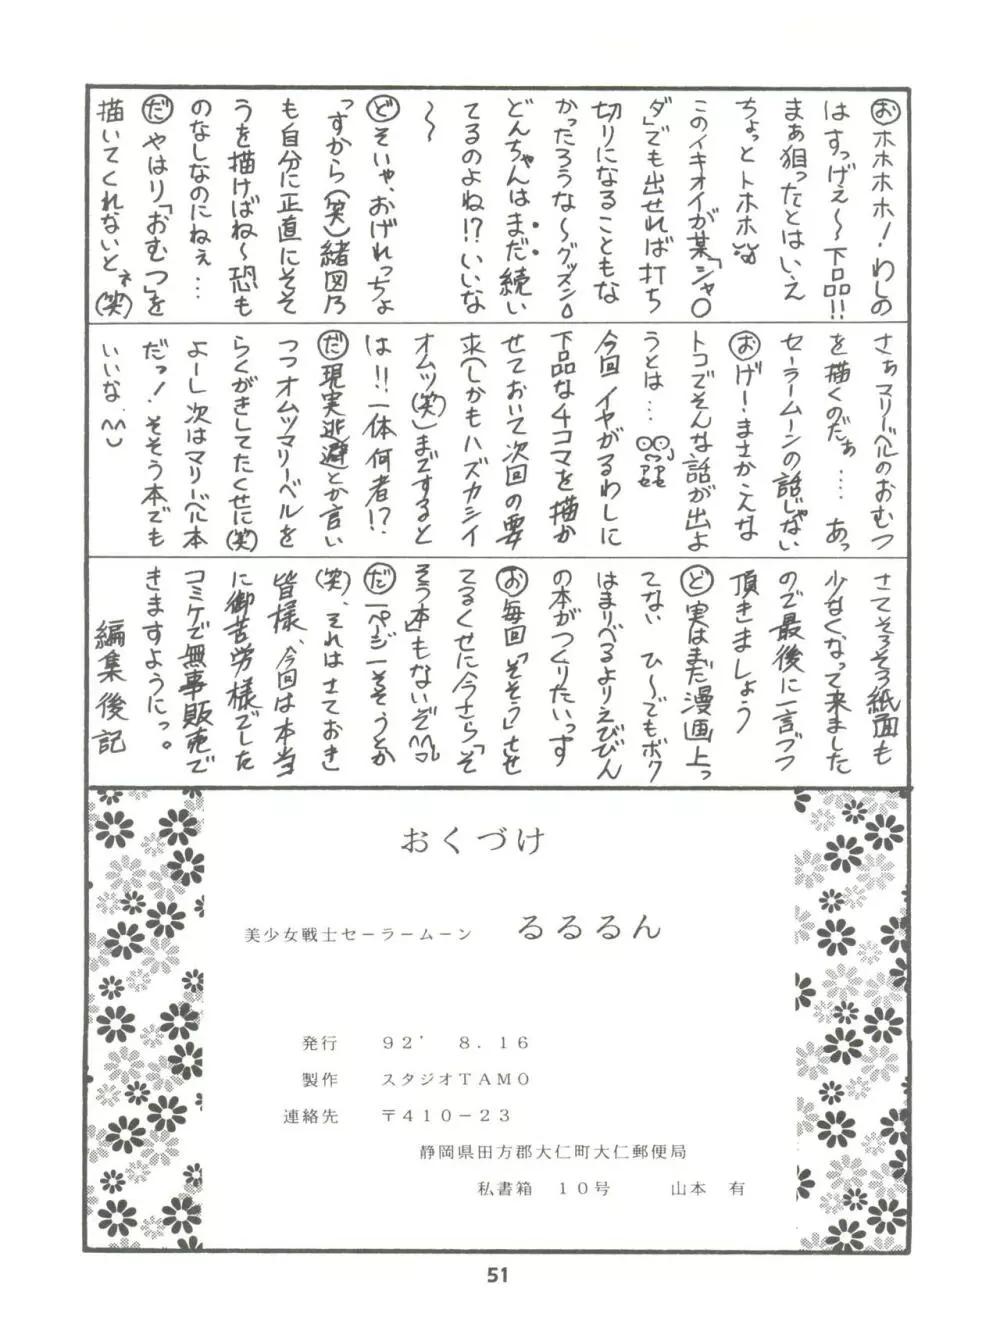 おホホホホ！わしの
はすっげぇ〜下品!!
まぁ狙ったとはいえ
ちょっとトホホ
このイキオイが某「シャ○
ダ」でも出せれば打ち
切りになることもな
かったろうな〜グッスン
どんちゃんはまだ続い
てるのよね!?いいな
〜〜
どそいや、おげれっちょ
っすから(笑)緒図乃
も自分に正直にそそ
うを描けばね〜恐も
のなしなのにねぇ…
だやはり「おむつ」を
描いてくれないとネ(笑)
さぁマリーベルのおむつ
を描くのだぁ…。あっ
セーラームーンの話じゃない
おげー！まさかこんな
トコでそんな話が出よ
うとは…
今回イヤがるわしに
下品な4コマを描か
せておいて次回の要
求(しかもハズカシイ
オムツ(笑)までするト
は!!一体何者!?
だ現実逃避とか言い
つつオムツマリーベルを
らくがきしてたくせに(笑)
よーし次はマリーベル本
だっ！そそう本でも
いいな.^^
さてそろそろ紙面も
少なくなって来ました
ので最後に一言づつ
頂きましょう
ど実はまだ漫画上っ
てないひ〜でもボク
はまりべるよりえびびん
の本がつくりたいっす
お毎回「そそう」させ
てるくせに今さら「そ
そう本」もないぞ^^
だ一ページそそうとか
(笑)、それはさておき
皆様、今回は本当
に御苦労様でした
コミケで無事販売で
きますようにっ。
編集後記
おくづけ
美少女戦士セーラームーン　るるるん
発行　９２’　８．１６
製作　スタジオＴＡＭＯ
連絡先　〒４１０－２３
静岡県田方郡大仁町大仁郵便局
私書箱　１０号　山本　有
51